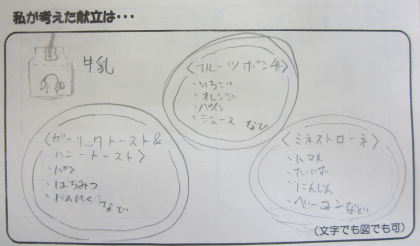 私が考えた献立は・・・
牛乳
〈フルーツポンチ〉
・いちご
・オレンジ
・パイン
・ジュース など
〈ガーリックトースト&
ハニートースト〉
・パン
・はちみつ
・にんにく など
〈ミネストローネ〉
・トマト
・にんじん
・ベーコン など
(文字でも図でも可)